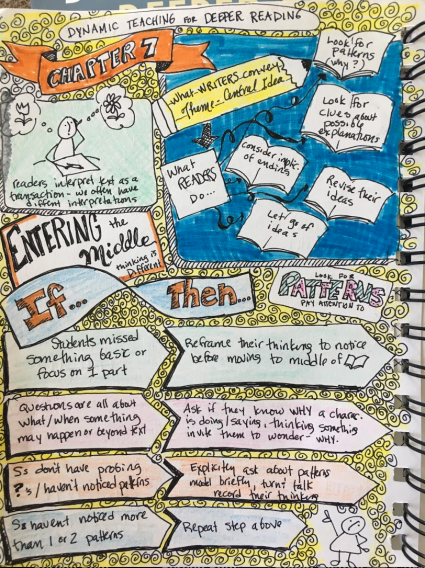 DYNAMIC TEACHING for DEEPER READING
CHAPTER 7
readers interpret text as a
transaction - we often have
different interpretations
What WRITERS convey
Theme - Central Idea
What
READERS
Do...
Look for
patterns
(why?)
Look for
clues about
possible
explanations
Consider
of ending
Revise their
ideas
Let go of
ideas
ENTERING the
Middle
thinking is
Different
If...
Then...
LOOK FOR
PATTERNS
PAY ATTENTION TO
Students missed
something basic or
focus on 1 part
Reframe their thinking to notice
before moving to middle of
Questions are all about
what/when something
may happen or beyond text
Ask if they know WHY a chara.
is doing/saying, thinking something
invite them to wonder - WHY.
Ss don't have probing
?s / haven't noticed
Explicitly ask about patterns
model briefly, turn & talk
record their thinking
Ss haven't noticed more
than 1 or 2 patterns
Repeat step above